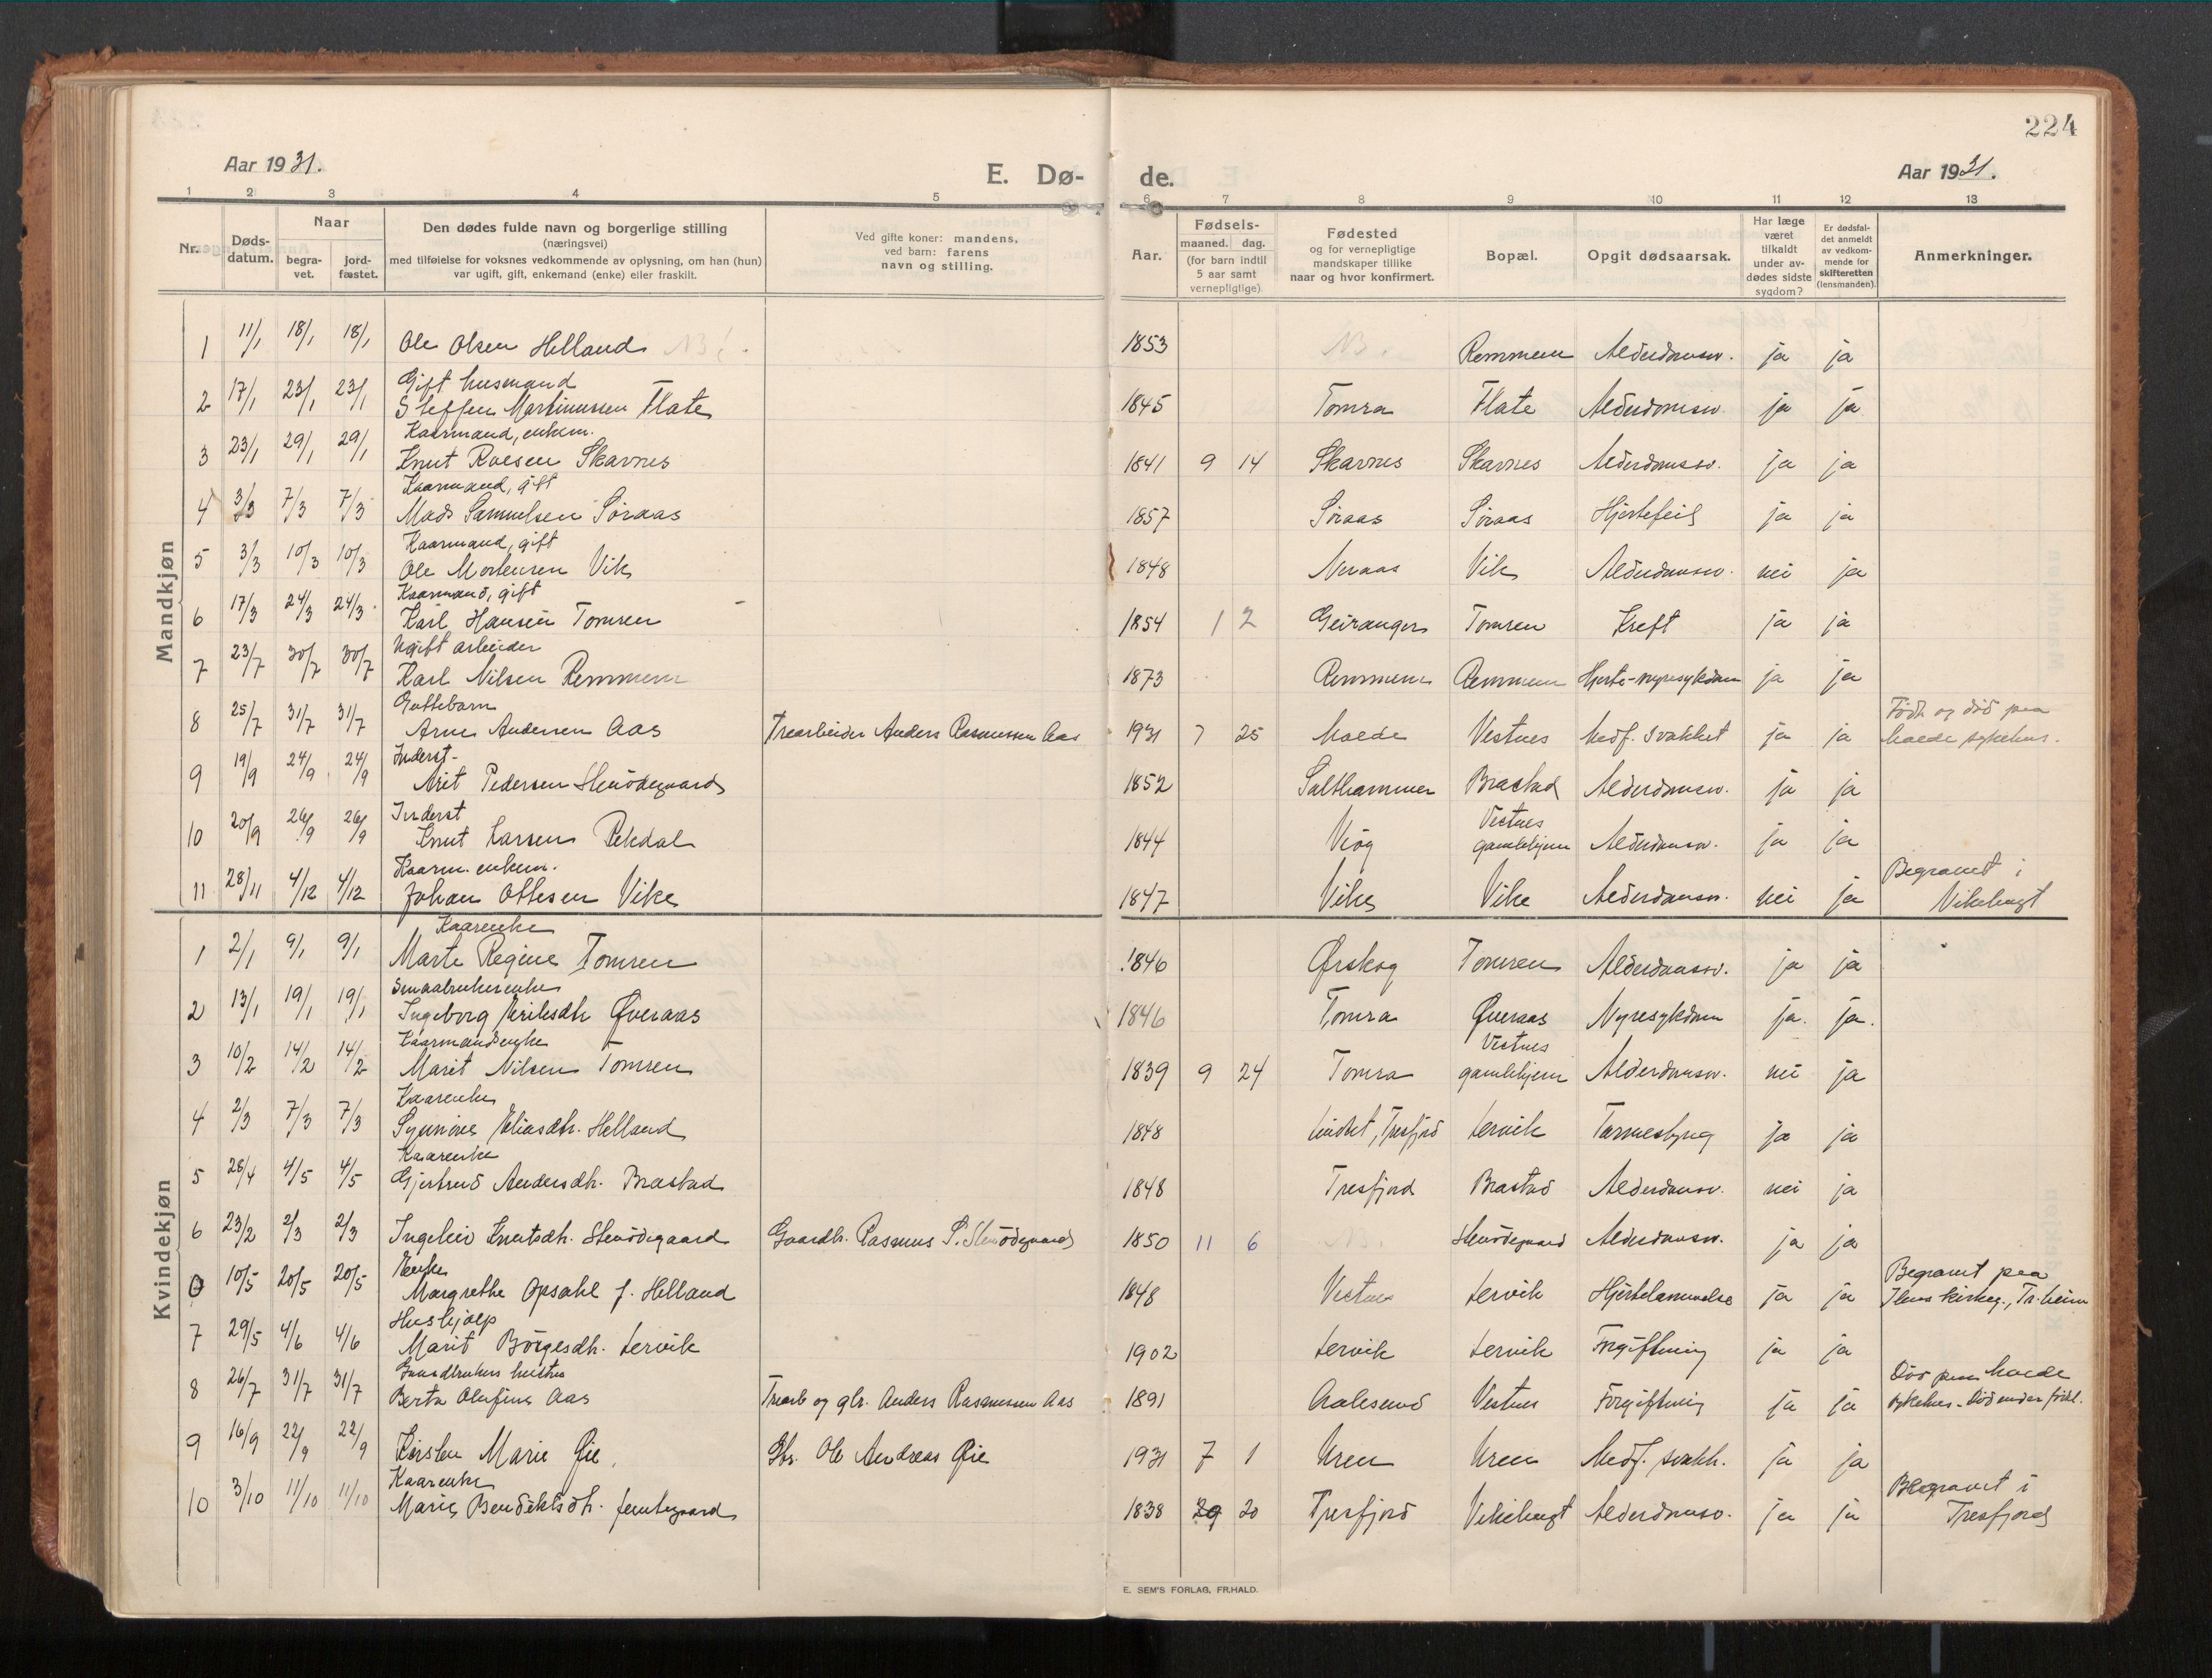 224
Aar 1931.
E. Dø-
de.
Aar 1931.
1 2 3 4 5 6 7 8 9 10 11 12 13
Nr.
Døds-
datum.
Naar
begra-
vet.
jord-
fæstet.
Den dødes fulde navn og borgerlige stilling
(næringsvei)
med tilføielse for voksnes vedkommende av oplysning, om han (hun)
var ugift, gift, enkemand (enke) eller fraskilt.
Ved gifte koner: mandens,
ved barn: farens
navn og stilling.
Aar.
Fødsels-
maaned. dag.
(for barn indtil
5 aar samt
vernepligtige)
Fødested
og for vernepligtige
mandskaper tillike
naar og hvor konfirmert.
Bopæl.
Opgit dødsaarsak.
Har læge
været
tilkaldt
under av-
dødes sidste
sygdom?
Er dødsfal-
det anmeldt
av vedkom-
mende for
skifteretten
(lensmanden).
Anmerkninger.
Mandkjøn
1 11/1 18/1 18/1 Ole Olsen Helland 1853 Remmem Alderdomsv. ja ja
Gift husmand
2 17/1 23/1 23/1 Steffen Martinussen Flate 1845 Tomra Flate Alderdomsv. ja ja
Kaarmand, enkem.
3 23/1 29/1 29/1 Knut Roesen Skarnes 1841 9 14 Skarnes Skarnes Alderdomsv. ja ja
Kaarmand, gift
4 3/3 7/3 7/3 Mads Samuelsen Søraas 1857 Søraas Søraas Hjertefeil ja ja
Kaarmand, gift
5 3/3 10/3 10/3 Ole Mortensen Vik 1848 Neraas Vik Alderdomsv. nei ja
Kaarmand, gift
6 17/3 24/3 24/3 Karl Hansen Tomren 1854 1 2 Geiranger Tomren Kreft ja ja
Ugift arbeider
7 23/7 30/7 30/7 Karl Nilsen Remmem 1873 Remmem Remmem Hjerte-nyresykdom ja ja
Guttebarn
8 25/7 31/7 31/7 Arne Andersen Aas Trearbeider Anders Rasmussen Aas 1931 7 25 Molde Vestnes Medf. svakhet ja ja
Født og død paa
Molde sykehus.
Inderst-
9 19/9 24/9 24/9 Arit Pedersen Stenødegaard 1852 Salthammer Brastad Alderdomsv. ja ja
Inderst
10 20/9 26/9 26/9 Knut Larsen Rekdal 1844 Veøy Vestnes
gamlehjem Alderdomsv. ja ja
Kaarm. enkem.
11 28/11 4/12 4/12 Johan Ottesen Vike 1847 Vike Vike Alderdomsv. nei ja
Begravet i
Vikebugt
Kvindekjøn
Kaarenke
1 2/1 9/1 9/1 Marte Regine Tomren 1846 Ørskog Tomren Alderdomsv. ja ja
Smaabrukerenke
2 13/1 19/1 19/1 Ingeborg Eriksdtr. Øveraas 1846 Tomra Øveraas Nyresykdom ja. ja.
Kaarmandsenke
3 10/2 14/2 14/2 Marit Nilsen Tomren 1839 9 24 Tomra Vestnes
gamlehjem Alderdomsv. nei ja
Kaarenke
4 2/3 7/3 7/3 Synnøve Eliasdtr. Helland 1848 Tresfjord Lervik Tarmeslyng ja ja
Kaarenke
5 28/4 4/5 4/5 Gjertrud Andersdtr. Brastad 1848 Tresfjord Brastad Alderdomsv. nei ja
6 23/2 2/3 2/3 Ingeleiv Knutsdtr. Stenødegaard Gaardbr. Rasmus S. Stenødegaard 1850 11 6 Stenødegaard Alderdomsv. ja ja
Enke
0 10/5 20/5 20/5 Margrethe Opsahl f. Helland 1848 Vestnes Lervik Hjertelammelse ja ja
Begravet paa
Ilens kirkeg., Tr.heim
Hushjælp
7 29/5 4/6 4/6 Marit Børgesdtr. Lervik 1902 Lervik Lervik Forgiftning ja ja
Gaardbrukers hustru
8 26/7 31/7 31/7 Berta Olufine Aas Trearb og gbr. Anders Rasmussen Aas 1891 Aalesund Vestnes Forgiftning ja ja
Død paa Molde
sykehus. Død under fødsl.
9 16/9 22/9 22/9 Kirsten Marie Øie Gbr. Ole Andreas Øie 1931 7 1 Uren Uren Medf. svakh. ja ja
Kaarenke
10 3/10 11/10 11/10 Marie Bendiktsdtr. Jemtegaard 1838 29 20 Tresfjord Vikebugt Alderdomsv. ja ja
Begravet i
Tresfjord
E. SEM'S FORLAG, FR.HALD.